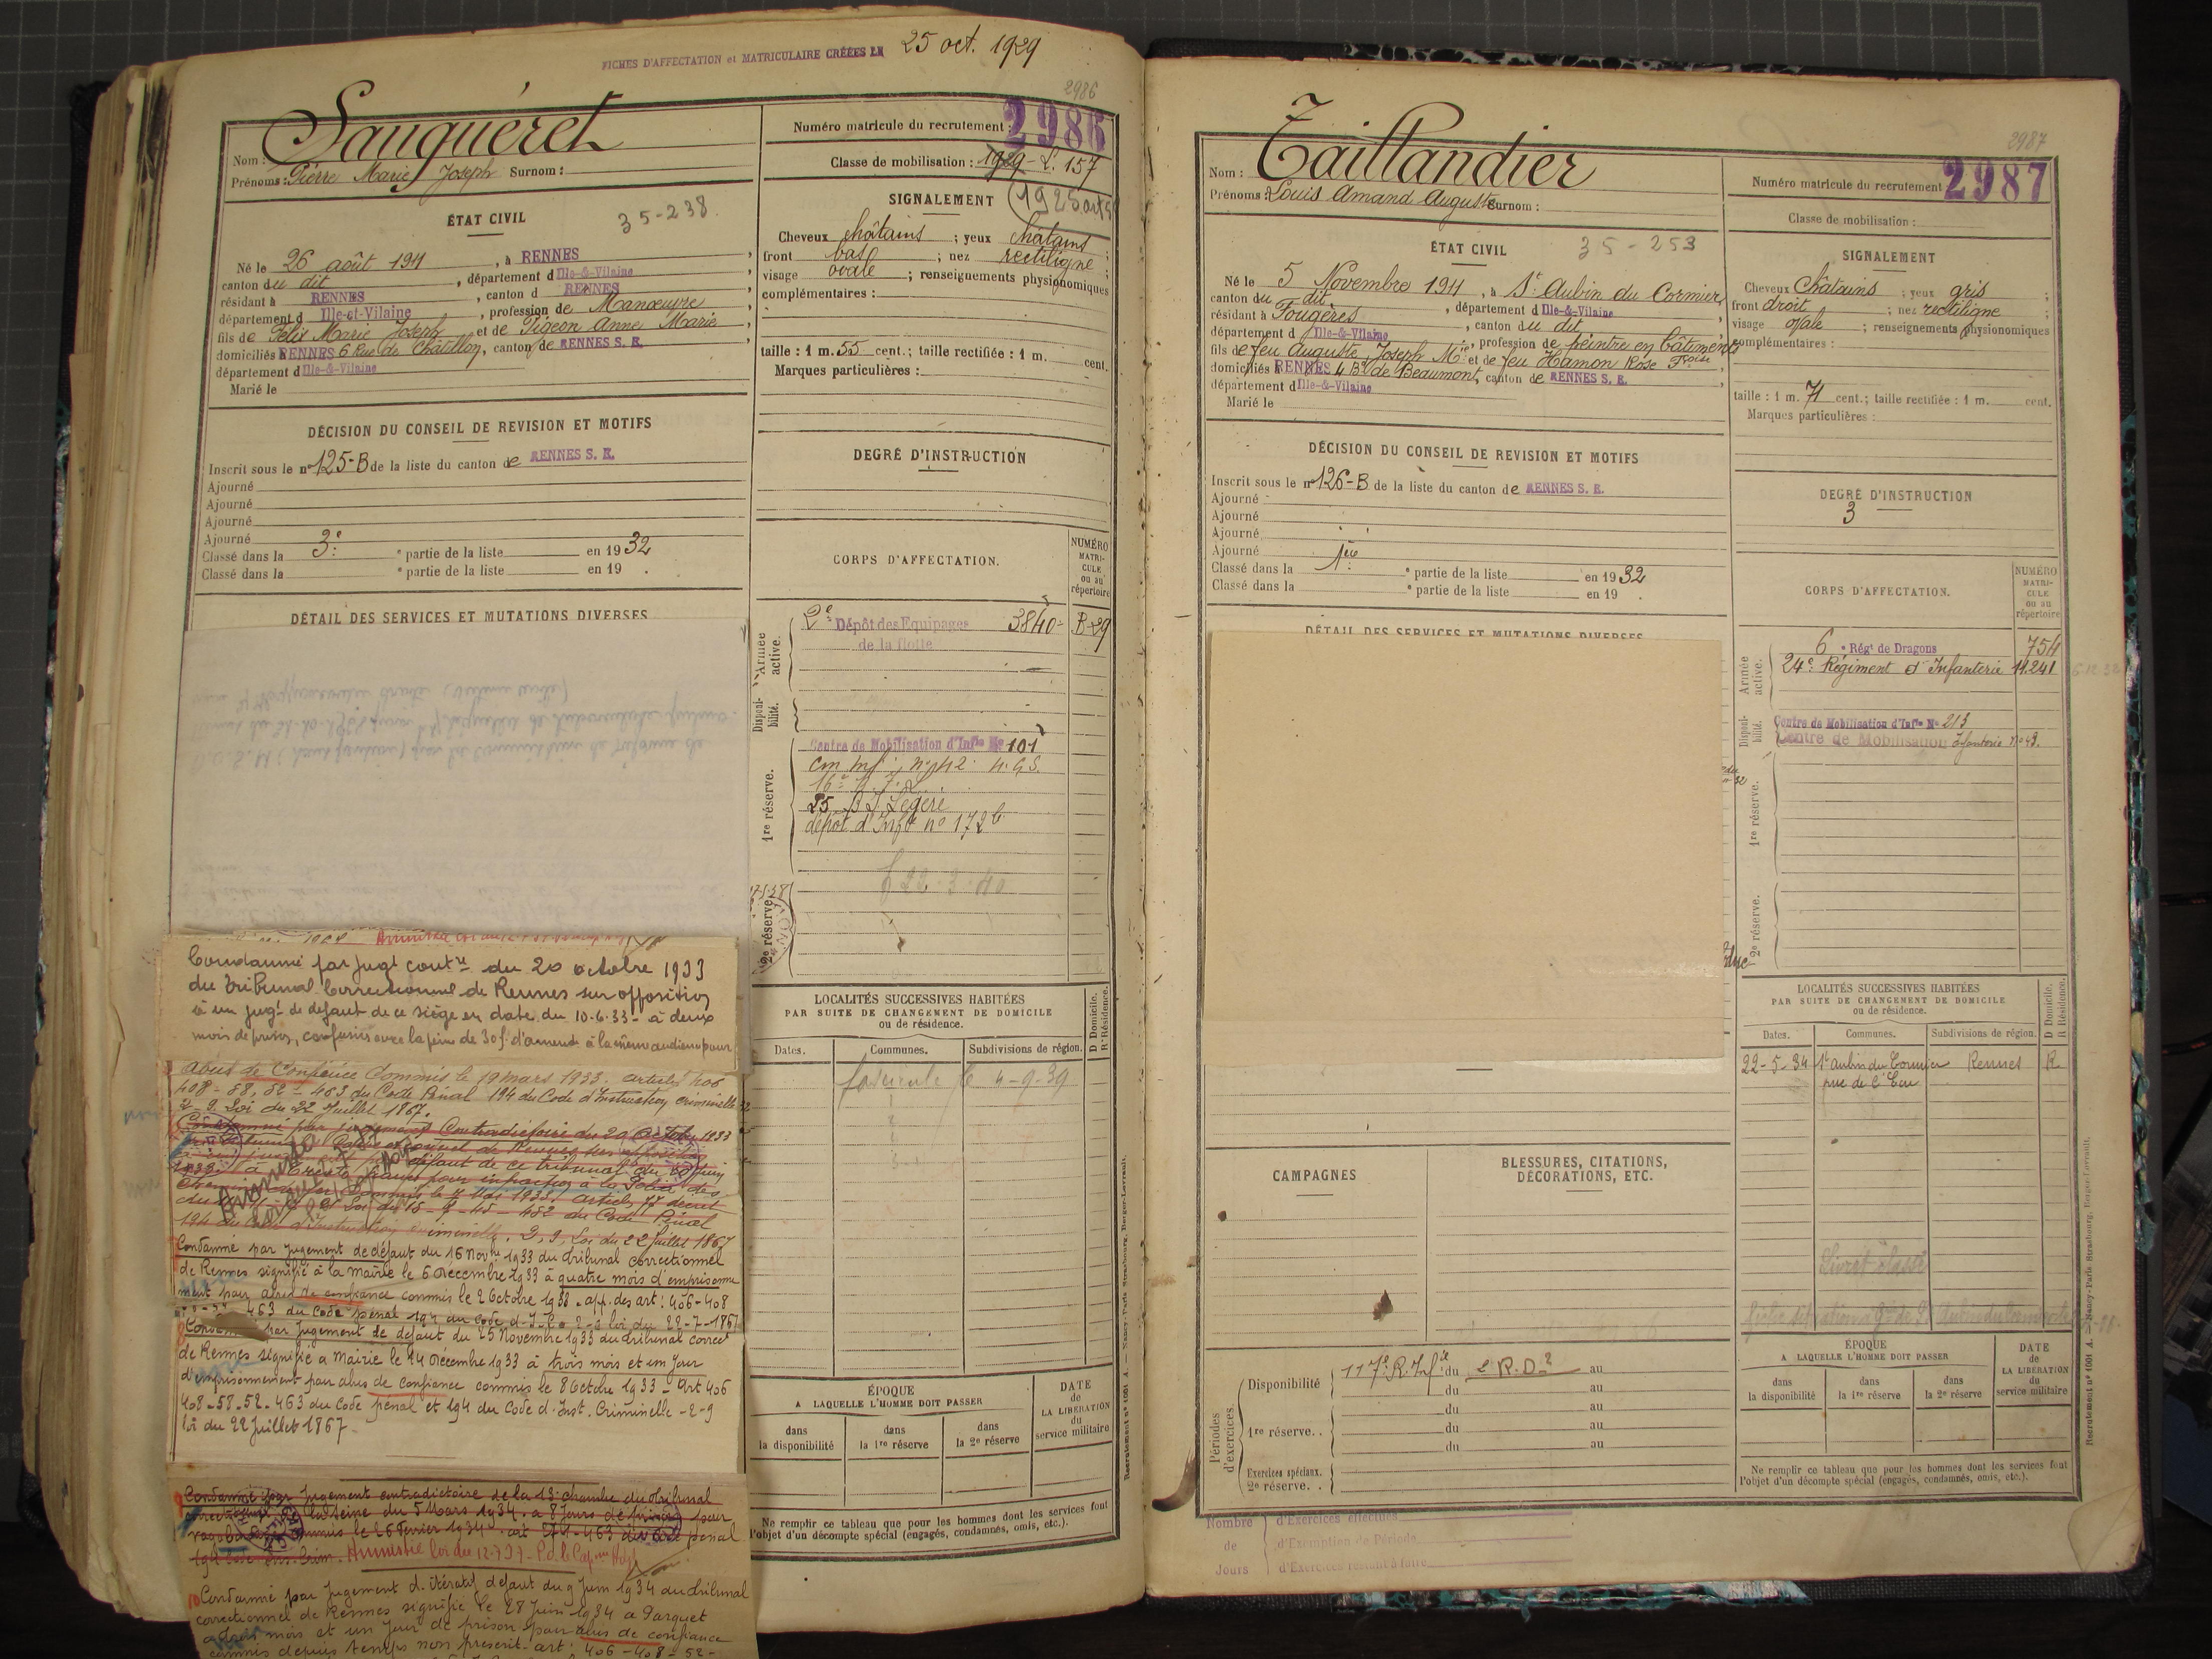 FICHES D'AFFECTATION et MATRICULAIRE CRÉÉES LE 25 oct. 1929
2986
Nom : Sauquéret
Prénoms : Pierre Marie Joseph Surnom :
ÉTAT CIVIL 35-238.
Né le 26 août 1911, à RENNES
canton du dit, département d Ille-&-Vilaine
résidant à RENNES, canton d RENNES
département d Ille-et-Vilaine, profession de Manœuvre
fils de Félix Marie Joseph et de Pigeon Anne Marie
domiciliés à RENNES 6 Rue de Châtillon, canton de RENNES S. E.
département d Ille-&-Vilaine
Marié le
DÉCISION DU CONSEIL DE REVISION ET MOTIFS
Inscrit sous le nº 125-B de la liste du canton de RENNES S. E.
Ajourné
Ajourné
Ajourné
Ajourné
Classé dans la 3e partie de la liste en 1932
Classé dans la e partie de la liste en 19 .
DÉTAIL DES SERVICES ET MUTATIONS DIVERSES
Condamné par jugt contre du 20 octobre 1933
du Tribunal Correctionnel de Rennes sur opposition
à un jugt de défaut de ce siège en date du 10.6.33 - à deux
mois de prison, confusion avec la peine de 30 f. d'amende à la même audience pour
abus de Confiance Commis le 19 mars 1933. articles 406
408 - 58, 52 - 463 du Code Pénal 194 du Code d'Instruction criminelle
2 - 9. Loi du 22 Juillet 1867.
Condamné par jugement Contradictoire du 20 Octobre 1933
défaut de ce tribunal du 10 juin
1933 à trente francs pour infraction à la Police des
Chemins de fer Commis le 4 Mai 1933. articles 77 décret
194 du Code d'Instruction criminelle. 2, 9, Loi du 22 Juillet 1867
Condamné par Jugement de défaut du 16 Novbre 1933 du Tribunal Correctionnel
de Rennes signifié à la mairie le 6 Décembre 1933 à quatre mois d'emprisonne
ment pour abus de confiance commis le 2 Octobre 1933. app. des art : 406-408
463 du Code pénal 194 du Code d. I. C. 2-9 loi du 22-7-1867
Condamné par Jugement de défaut du 25 Novembre 1933 du Tribunal correct
de Rennes signifié a Mairie le 14 Décembre 1933 à trois mois et un Jour
d'emprisonnement pour abus de Confiance commis le 8 Octobre 1933 - Art 406
408-58-52-463 du Code pénal et 194 du Code d. Inst. Criminelle -2-9
loi du 22 Juillet 1867 -
9 Condamné par Jugement contradictoire de la 13e chambre du Tribunal
correctionnel de la Seine du 5 Mars 1934. a 8 Jours de prison pour
commis le 26 Février 1934. art 463 du Code pénal
Amnistié loi du 12.7.37 -
10 Condamné par Jugement d. itératif défaut du 9 Juin 1934 du Tribunal
correctionnel de Rennes signifié le 28 Juin 1934 a Parquet
a trois mois et un Jour de prison pour abus de confiance
commis depuis temps non prescrit - art : 406-408-52-
Numéro matricule du recrutement : 2986
Classe de mobilisation : 1929 - L. 157
SIGNALEMENT
Cheveux châtains ; yeux châtains
front bas ; nez rectiligne ;
visage ovale ; renseignements physionomiques
complémentaires :
taille : 1 m. 55 cent. ; taille rectifiée : 1 m. cent.
Marques particulières :
DEGRÉ D'INSTRUCTION
CORPS D'AFFECTATION.
NUMÉRO MATRICULE ou au répertoire
Armée active.
2e Dépôt des Equipages 3840- B 29
de la flotte
Disponibilité.
1re réserve.
Centre de Mobilisation d'Infie No 101
dépôt d'Infie no 172
22.3.40
2e réserve.
LOCALITÉS SUCCESSIVES HABITÉES
PAR SUITE DE CHANGEMENT DE DOMICILE
ou de résidence.
D Domicile. R Résidence.
Dates. Communes. Subdivisions de région.
fascicule le 4-9-39
ÉPOQUE
A LAQUELLE L'HOMME DOIT PASSER
dans la disponibilité
dans la 1re réserve
dans la 2e réserve
DATE de LA LIBÉRATION du service militaire
Ne remplir ce tableau que pour les hommes dont les services font
l'objet d'un décompte spécial (engagés, condamnés, omis, etc.).
Recrutement nº 1001 A. — Nancy-Paris-Strasbourg, Berger-Levrault.
2987
Nom : Taillandier
Prénoms : Louis Amand Auguste Surnom :
ÉTAT CIVIL 35-253
Né le 5 Novembre 1911, à St Aubin du Cormier,
canton du dit, département d Ille-&-Vilaine
résidant à Fougères, canton du dit
département d Ille-&-Vilaine, profession de peintre en bâtiments
fils de feu Auguste Joseph Mie et de feu Hamon Rose Froise
domiciliés à RENNES 4 Bd de Beaumont, canton de RENNES S. E.
département d Ille-&-Vilaine
Marié le
DÉCISION DU CONSEIL DE REVISION ET MOTIFS
Inscrit sous le nº 126-B de la liste du canton de RENNES S. E.
Ajourné
Ajourné
Ajourné
Ajourné
Classé dans la 1re partie de la liste en 1932
Classé dans la e partie de la liste en 19 .
DÉTAIL DES SERVICES ET MUTATIONS DIVERSES
CAMPAGNES
BLESSURES, CITATIONS, DÉCORATIONS, ETC.
Périodes d'exercices.
Disponibilité 117e R. Infie du au
du au
1re réserve. . du au
du au
du au
Exercices spéciaux.
2e réserve. .
Nombre de Jours
d'Exercices effectués
d'Exemption de Période
d'Exercices restant à faire
Numéro matricule du recrutement 2987
Classe de mobilisation :
SIGNALEMENT
Cheveux Châtains ; yeux gris ;
front droit ; nez rectiligne
visage ovale ; renseignements physionomiques
complémentaires :
taille : 1 m. 71 cent. ; taille rectifiée : 1 m. cent.
Marques particulières :
DEGRÉ D'INSTRUCTION
3
CORPS D'AFFECTATION.
NUMÉRO MATRICULE ou au répertoire
Armée active.
6e Régt de Dragons 754
24e Régiment d'Infanterie 11.241
Disponibilité.
Centre de Mobilisation d'Infie No 213
Centre de Mobilisation Infanterie no 43.
1re réserve.
2e réserve.
LOCALITÉS SUCCESSIVES HABITÉES
PAR SUITE DE CHANGEMENT DE DOMICILE
ou de résidence.
D Domicile. R Résidence.
Dates. Communes. Subdivisions de région.
22-5-34 St Aubin du Cormier Rennes R.
rue de l'Eau
Livret classé
ÉPOQUE
A LAQUELLE L'HOMME DOIT PASSER
dans la disponibilité
dans la 1re réserve
dans la 2e réserve
DATE de LA LIBÉRATION du service militaire
Ne remplir ce tableau que pour les hommes dont les services font
l'objet d'un décompte spécial (engagés, condamnés, omis, etc.).
Recrutement nº 1001 A. — Nancy-Paris-Strasbourg, Berger-Levrault.